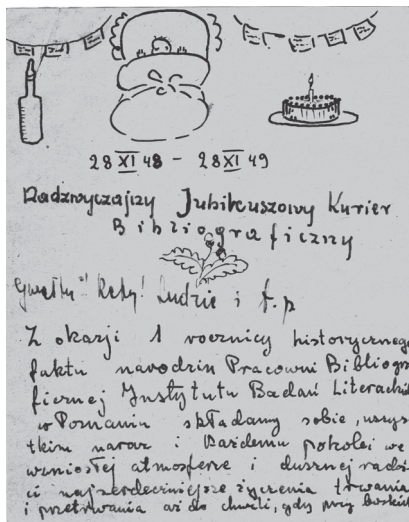 28 XI 48 - 28 XI 49
Nadzwyczajny Jubileuszowy Kurier
Bibliograficzny
Gwałtu! Rety! Ludzie i t.p
Z okazji 1 rocznicy historycznego
faktu narodzin Pracowni Bibliogra
ficznej Instytutu Badań Literackich
w Poznaniu składamy sobie, wszys
tkim naraz i każdemu pokolei we
wzniosłej atmosferze i dusznej radoś
ci najserdeczniejsze życzenia trwania
i przetrwania aż do chwili, gdy przy boskich